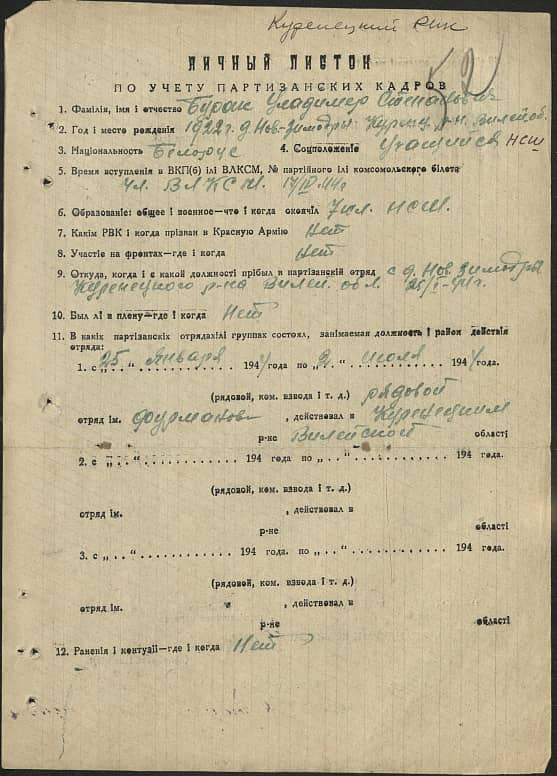 Куренецкий РИК
52
ЛИЧНЫЙ ЛИСТОК
ПО УЧЕТУ ПАРТИЗАНСКИХ КАДРОВ
1. Фамілія, імя і отчество Бурак Владимер Степанович
2. Год і место рождения 1922 г. д. Нов-Зимодры Куренец. р-н. Вилей. об.
3. Національность Белорус 4. Соцположеніе Учащийся НСШ
5. Время вступления в ВКП(б) ілі ВЛКСМ, № партійного ілі комсомольского білета
чл. ВЛКСМ. 17/IV-44 г.
6. Образованіе: общее і военное—что і когда окончіл 7 кл. НСШ.
7. Какім РВК і когда прізван в Красную Армію Нет
8. Участіе на фронтах—где і когда Нет
9. Откуда, когда і с какой должності прібыл в партізанскій отряд с д. Нов. Зимодры
Куренецкого р-на Вилей. обл. 25/I-44 г.
10. Был лі в плену—где і когда Нет
11. В какіх партізанскіх отрядах ілі группах состоял, занимаемая должность і район действія
отряда:
1. с „25“ Января 1944 года по „2“ июля 1944 года.
(рядовой, ком. взвода і т. д.) рядовой
отряд ім. Фурманова, действовал в Куренецким
р-не Вилейской області
2. с „..“ ........... 194 года по „..“ ............ 194 года.
(рядовой, ком. взвода і т. д.)
отряд ім. , действовал в
р-не області
3. с „..“ ........... 194 года. по „..“ ............ 194 года.
(рядовой, ком. взвода і т. д.)
отряд ім. , действовал в
р-не області
12. Раненія і контузіі—где і когда Нет